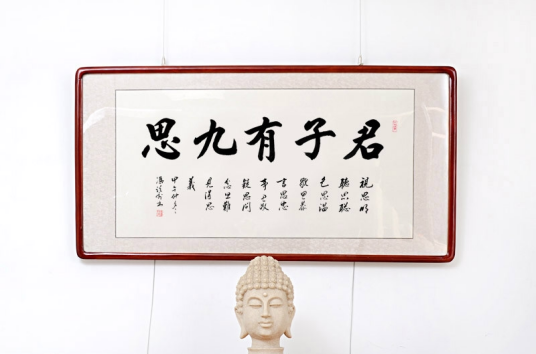 君子有九思
視思明
聽思聰
色思溫
貌思恭
言思忠
事思敬
疑思問
忿思難
見得思
義